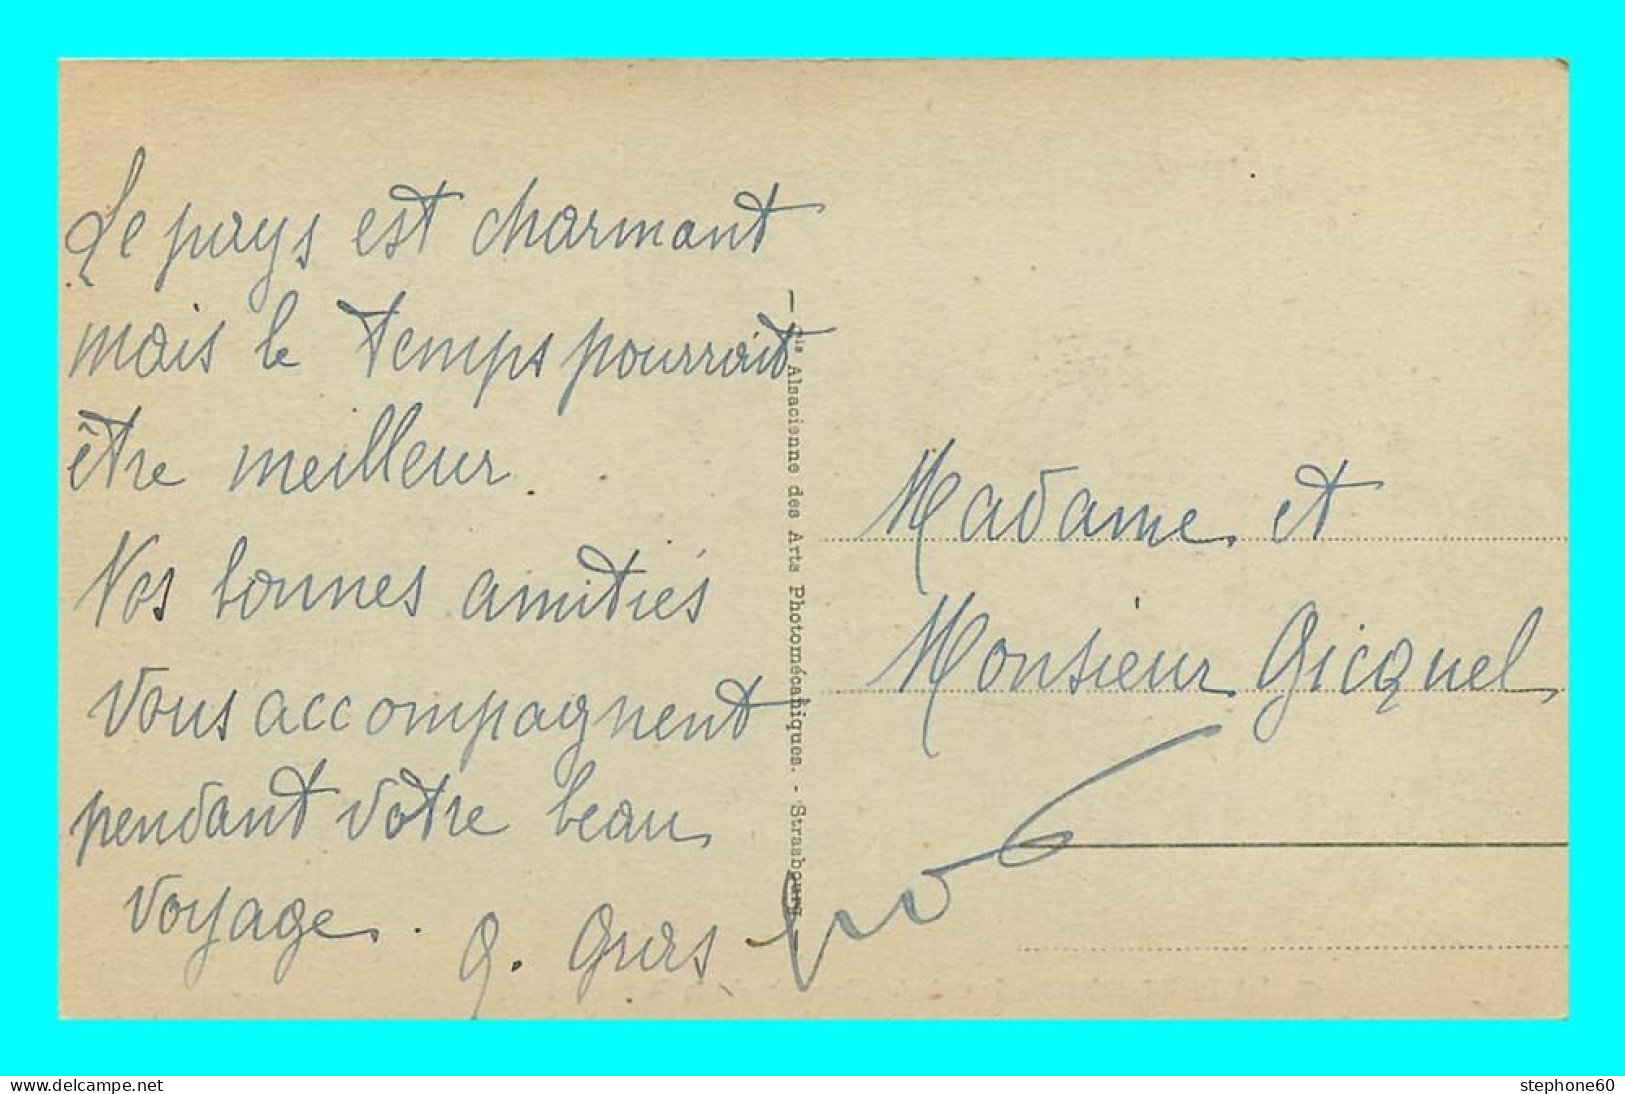 Le pays est charmant
mais le temps pourrait
être meilleur.
Nos bonnes amitiés
vous accompagnent
pendant votre beau
voyage.
Cie Alsacienne des Arts Photomécaniques. - Strasbourg
Madame et
Monsieur Gicquel
www.delcampe.net
stephone60